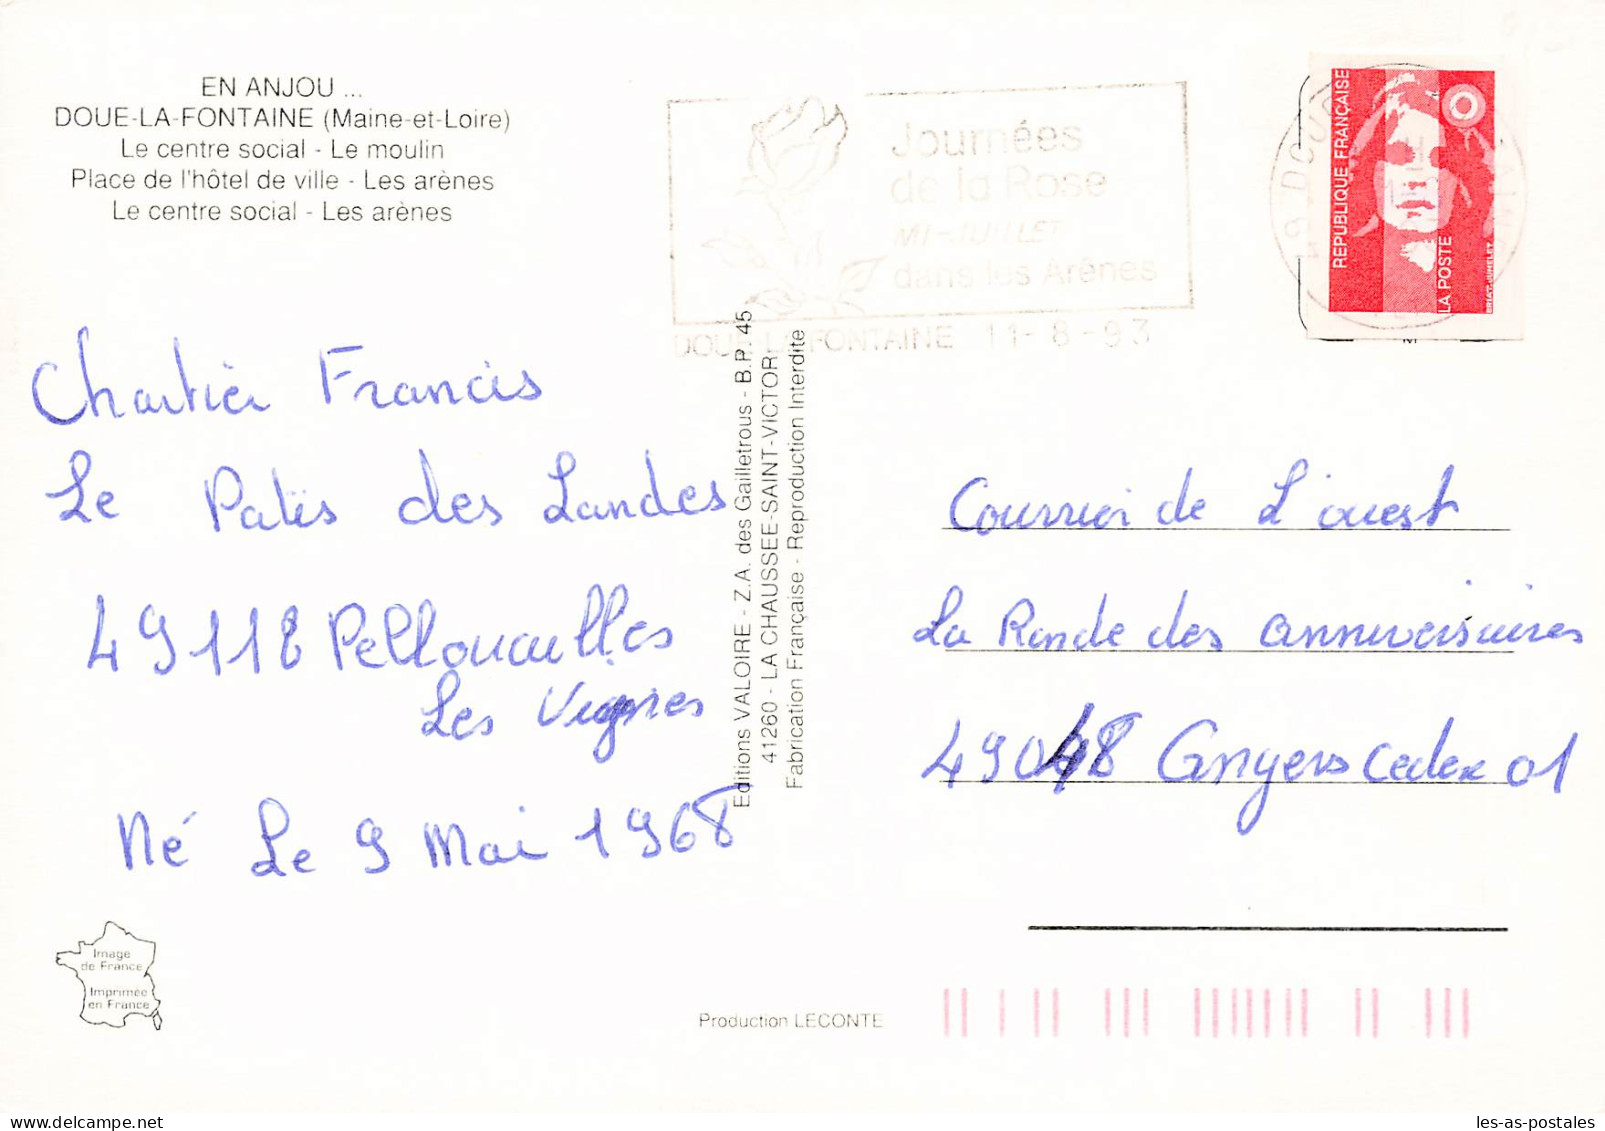 EN ANJOU ...
DOUE-LA-FONTAINE (Maine-et-Loire)
Le centre social - Le moulin
Place de l'hôtel de ville - Les arènes
Le centre social - Les arènes
Journées
de la Rose
MI-JUILLET
dans les Arènes
DOUE-LA-FONTAINE 11-8-93
49 DOUE
REPUBLIQUE FRANÇAISE
LA POSTE
BRIAT-JUMELET
Chartier Francis
Le Patis des Landes
49118 Pellouailles
Les Vignes
Né Le 9 Mai 1968
Editions VALOIRE - Z.A. des Gailletrous - B.P. 45
41260 - LA CHAUSSEE-SAINT-VICTOR
Fabrication Française - Reproduction Interdite
Courrier de L'ouest
La Ronde des anniversaires
49048 Angers Cedex 01
Image
de France
Imprimée
en France
Production LECONTE
les-as-postales